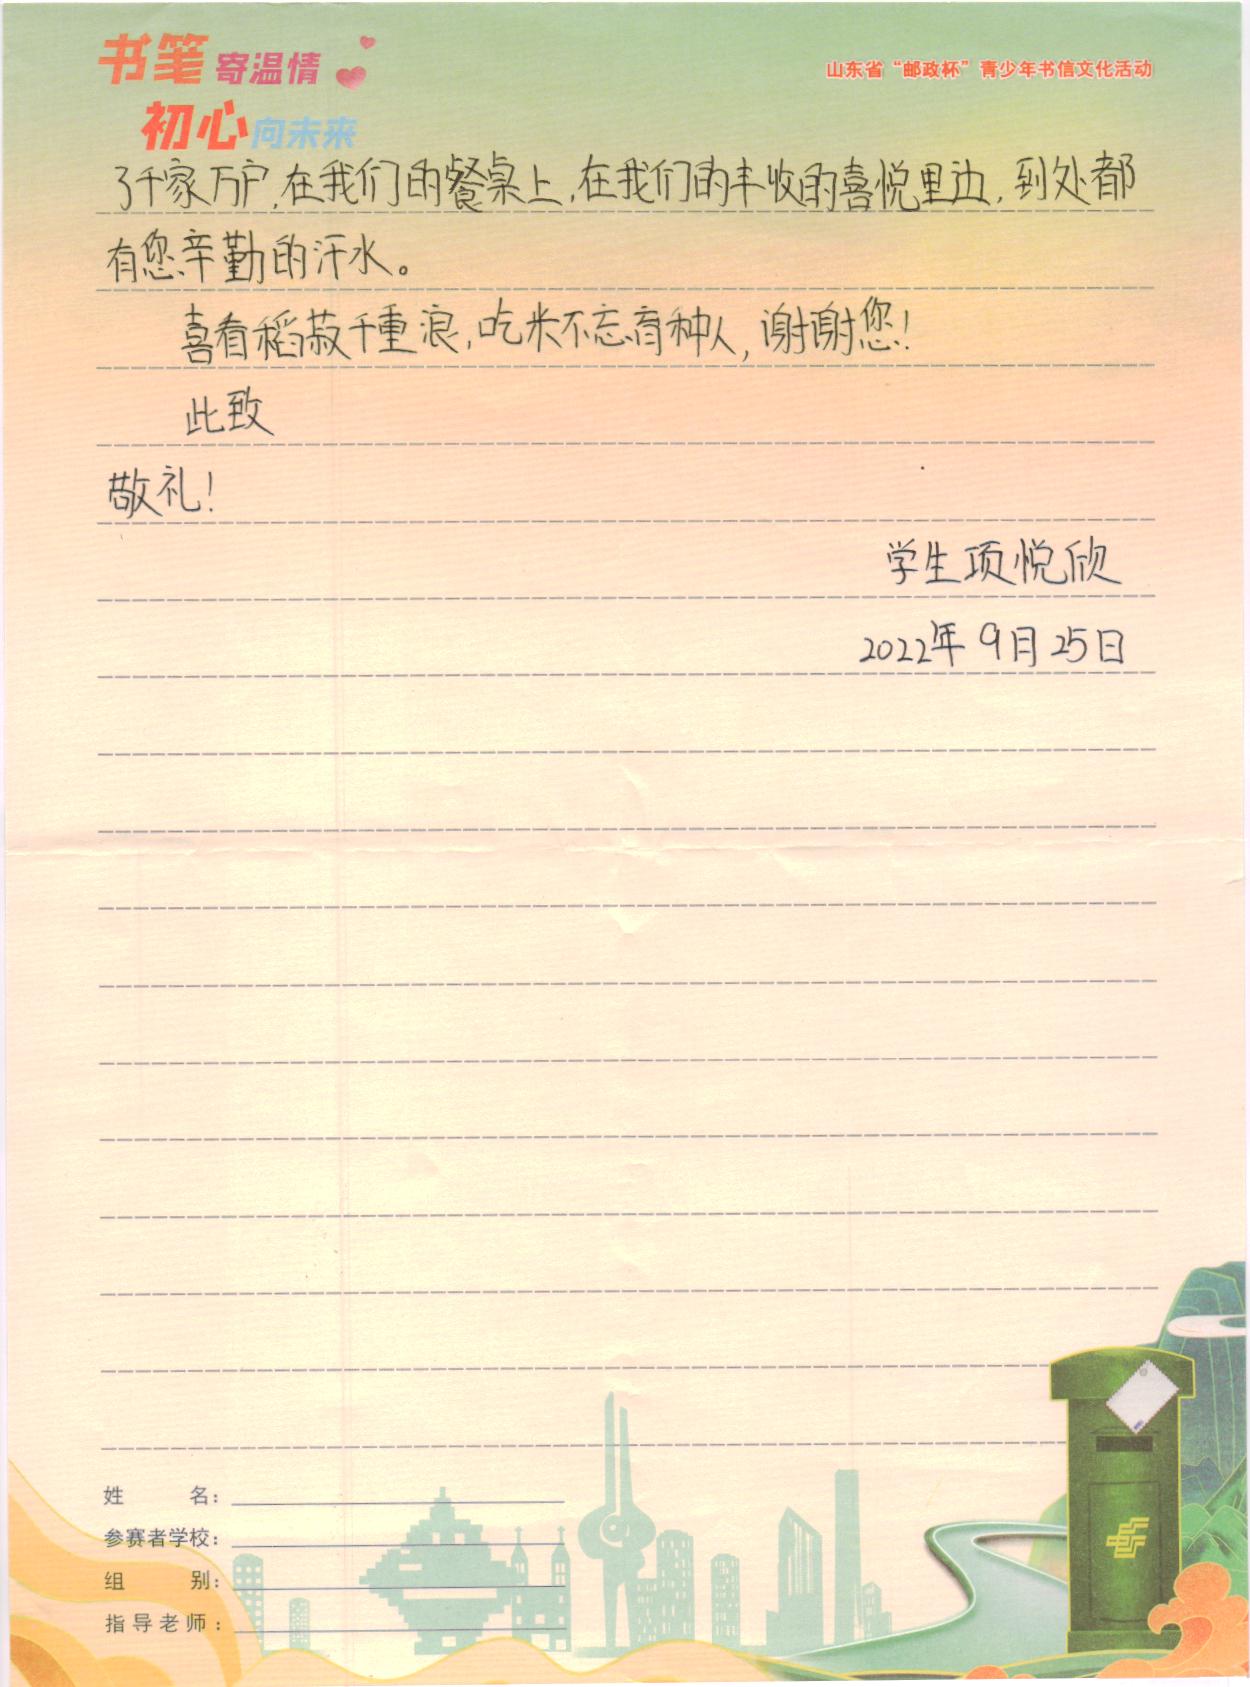 书笔寄温情
初心向未来
山东省“邮政杯”青少年书信文化活动
了千家万户,在我们的餐桌上,在我们的丰收的喜悦里边,到处都
有您辛勤的汗水。
喜看稻菽千重浪,吃米不忘育种人,谢谢您!
此致
敬礼!
学生项悦欣
2022年9月25日
姓 名:
参赛者学校:
组 别:
指导老师: